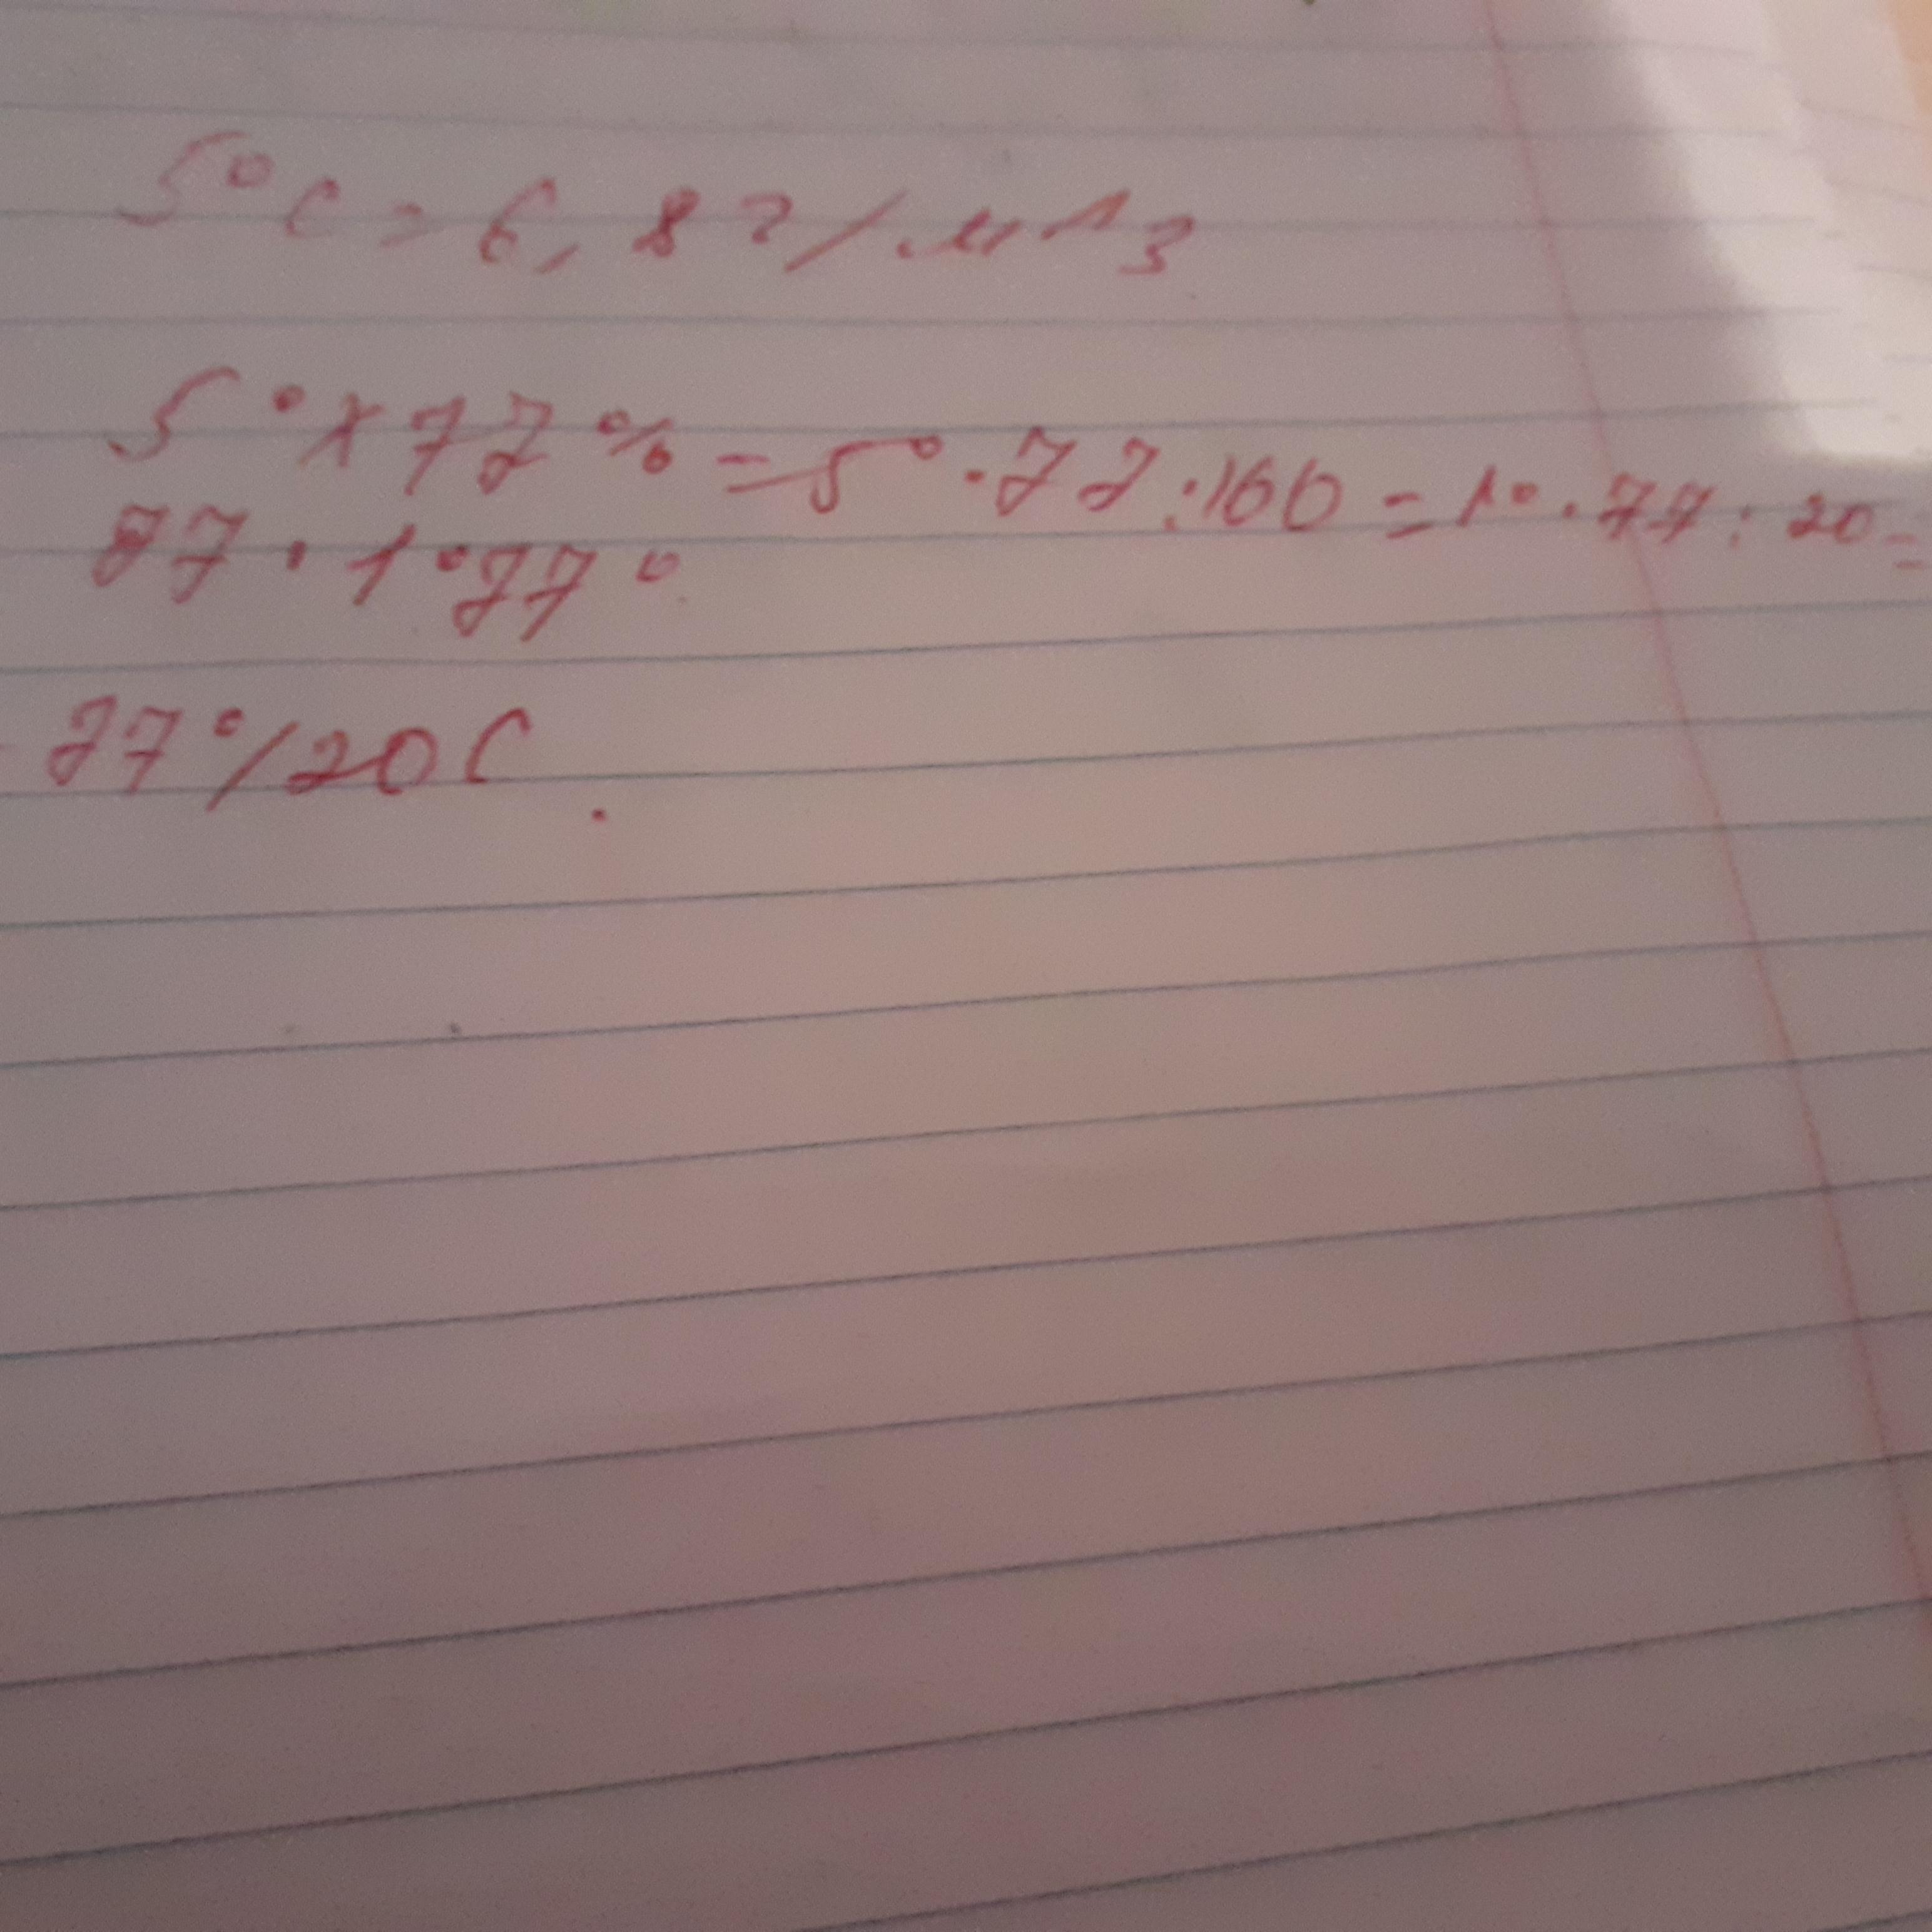 5°C = 6,8 г/м^3
5° x 77% = 5° · 77 : 100 = 1° · 77 : 20 =
77 · 1° 77°
77°/20 C.